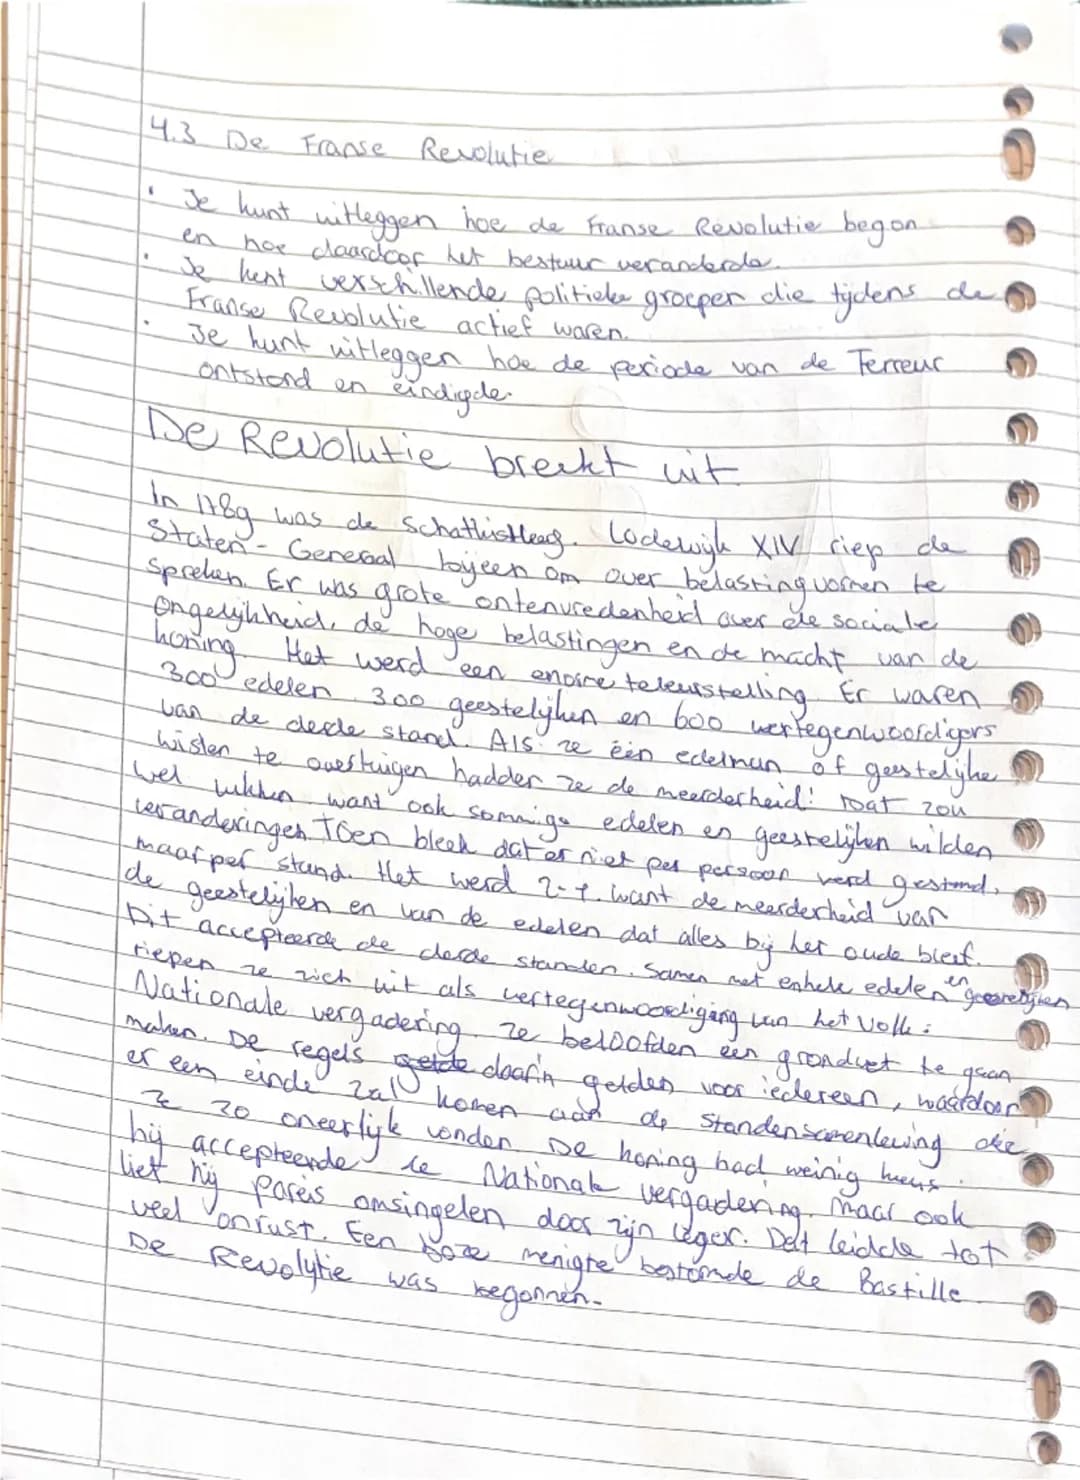 4.3 De Franse Revolutie
· Je kunt uitleggen hoe de Franse Revolutie begon
en hoe daardoor het bestuur veranderde.
· Je kent verschillende politieke groepen die tijdens de
Franse Revolutie actief waren.
· Je kunt uitleggen hoe de periode van de Terreur
ontstond en eindigde.
De Revolutie breekt uit
In 1789 was de Schatkistleeg. Lodewijk XIV riep de
Staten-Generaal bijeen om over belastingvormen te
spreken. Er was grote ontenvredenheid over de sociale
ongelijkheid, de hoge belastingen en de macht van de
koning. Het werd een enorme teleurstelling. Er waren
300 edelen 300 geestelijken en 600 vertegenwoordigers
van de derde stand. Als ze één edelman of geestelijke
wisten te overtuigen hadden ze de meerderheid! Dat zou
wel lukken want ook sommige edelen en geestelijken wilden
veranderingen. Toen bleek dat er niet per persoon werd gestemd,
maar per stand. Het werd 2-1. want de meerderheid van
de geestelijken en van de edelen dat alles bij het oude bleef.
Dit accepteerde de derde standen. Samen met enkele edelen en geestelijken
riepen ze zich uit als vertegenwoordiging van het volk:
Nationale vergadering. Ze beloofden een grondwet te gaan
maken. De regels daarin gelden voor iedereen, waardoor
er een einde zal komen aan de Standensamenleving die
ze zo oneerlijk vonden De koning had weinig keus.
hij accepteerde de Nationale vergadering. Maar ook
liet hij Pareis omsingelen door zijn leger. Dat leidde tot
veel onrust. Een boze menigte bestormde de Bastille
De Revolytie was begonnen.